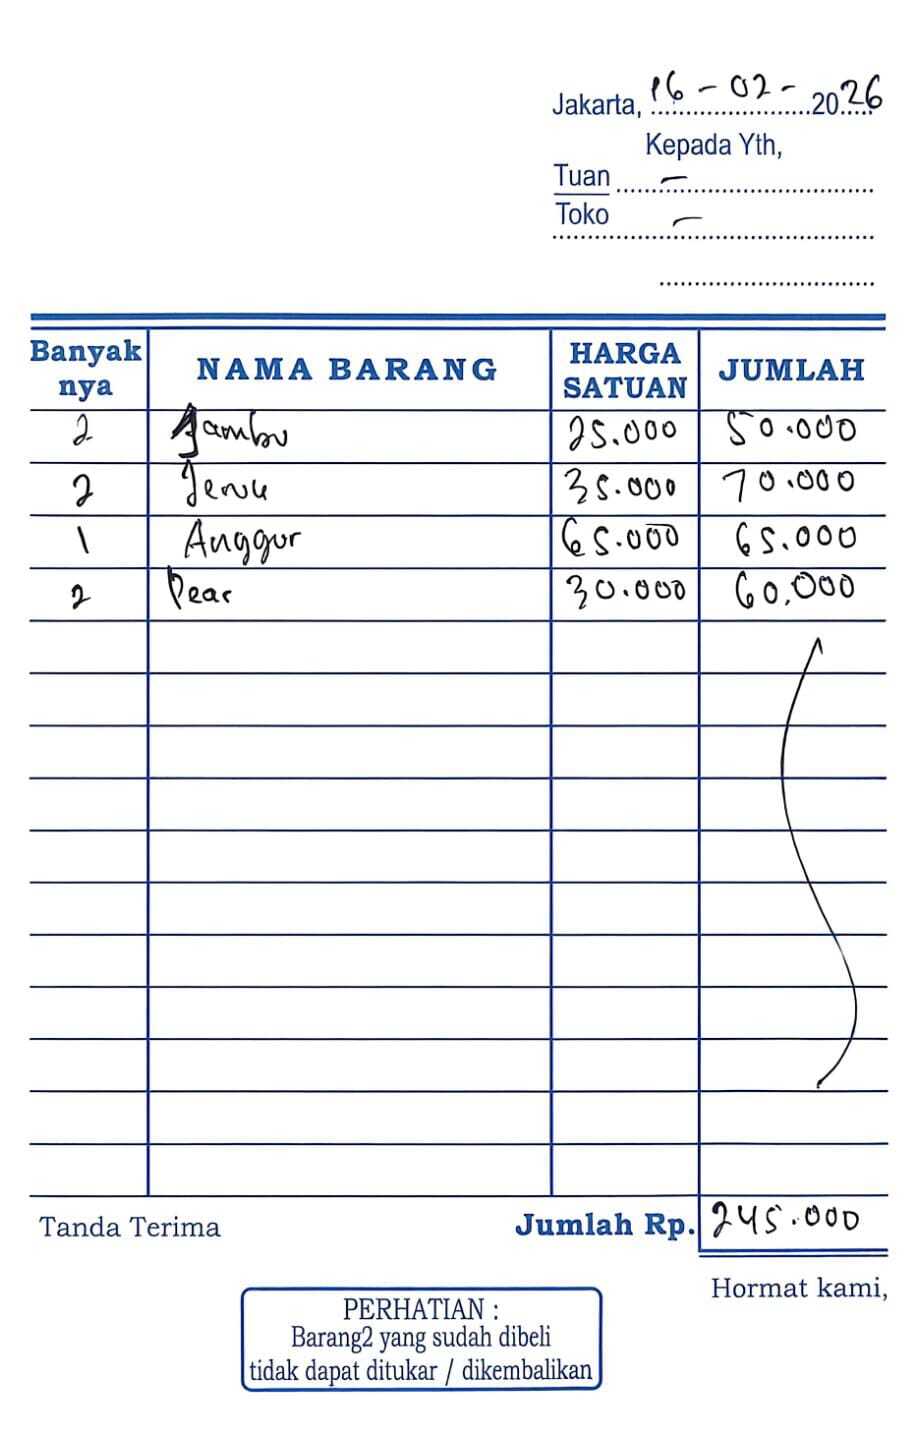 Jakarta, 16 - 02 - 2026
Kepada Yth,
Tuan -
Toko -
Banyak nya NAMA BARANG HARGA SATUAN JUMLAH
2 Jambu 25.000 50.000
2 Jeruk 35.000 70.000
1 Anggur 65.000 65.000
2 Pear 30.000 60.000
Tanda Terima Jumlah Rp. 245.000
Hormat kami,
PERHATIAN :
Barang2 yang sudah dibeli
tidak dapat ditukar / dikembalikan